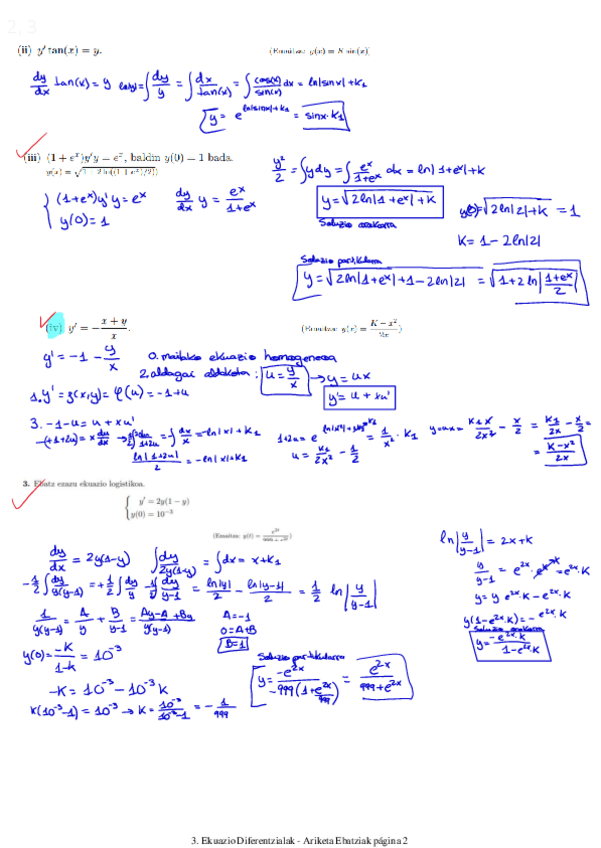 2, 3
(ii) y′ tan(x) = y. (Emaitza: y(x) = K sin(x))
dy/dx tan(x) = y ln|y| = ∫ dy/y = ∫ dx/tan(x) = ∫ cos(x)/sin(x) dx = ln|sinx| + K₁
y = e^(ln|sinx| + K₁) = sinx · K₁
(iii) (1 + eˣ)y′y = eˣ, baldin y(0) = 1 bada.
y(x) = √(1 + 2 ln((1 + eˣ)/2))
y²/2 = ∫ y dy = ∫ eˣ/(1+eˣ) dx = ln|1+eˣ| + K
{ (1+eˣ)y′y = eˣ dy/dx y = eˣ/(1+eˣ)
y(0) = 1
y = √(2ln|1+eˣ| + K)
Soluzio orokorra
y(0) = √(2ln|2| + K) = 1
K = 1 - 2ln|2|
Soluzio partikularra
y = √(2ln|1+eˣ| + 1 - 2ln|2|) = √(1 + 2ln|(1+eˣ)/2|)
(iv) y′ = −(x + y)/x. (Emaitza: y(x) = (K − x²)/2x)
y′ = -1 - y/x 0. mailako ekuazio homogeneoa
2. aldagai aldaketa: u = y/x → y = ux
1. y′ = f(x,y) = φ(u) = -1-u y′ = u + xu′
3. -1-u = u + xu′
-(1+2u) = x du/dx → ∫ du/(1+2u) = -∫ dx/x = -ln|x| + K₁
ln|1+2u|/2 = -ln|x| + K₁
1+2u = 1/x² · K₁
u = K₁/2x² - 1/2
y = ux = K₁x/2x² - x/2 = K₁/2x - x/2 = (K-x²)/2x
3. Ebatz ezazu ekuazio logistikoa.
{ y′ = 2y(1 − y)
y(0) = 10⁻³
(Emaitza: y(t) = e²ˣ/(999 + e²ˣ))
dy/dx = 2y(1-y) ∫ dy/2y(1-y) = ∫ dx = x + K₁
-1/2 ∫ dy/y(y-1) = +1/2 ∫ dy/y - 1/2 ∫ dy/(y-1) = ln|y|/2 - ln|y-1|/2 = 1/2 ln|y/(y-1)|
1/y(y-1) = A/y + B/(y-1) = (Ay-A+By)/y(y-1)
A = -1
0 = A+B
B = 1
ln|y/(y-1)| = 2x + K
y/(y-1) = e²ˣ · eᴷ = e²ˣ · K
y = y e²ˣ · K - e²ˣ · K
y(1 - e²ˣ · K) = -e²ˣ · K
Soluzio orokorra
y = -e²ˣ · K/(1 - e²ˣ K)
y(0) = -K/(1-K) = 10⁻³
-K = 10⁻³ - 10⁻³ K
K(10⁻³-1) = 10⁻³ → K = 10⁻³/(10⁻³-1) = -1/999
Soluzio partikularra
y = -e²ˣ/(-999(1 + e²ˣ/999)) = e²ˣ/(999 + e²ˣ)
3. Ekuazio Diferentzialak - Ariketa Ebatziak página 2